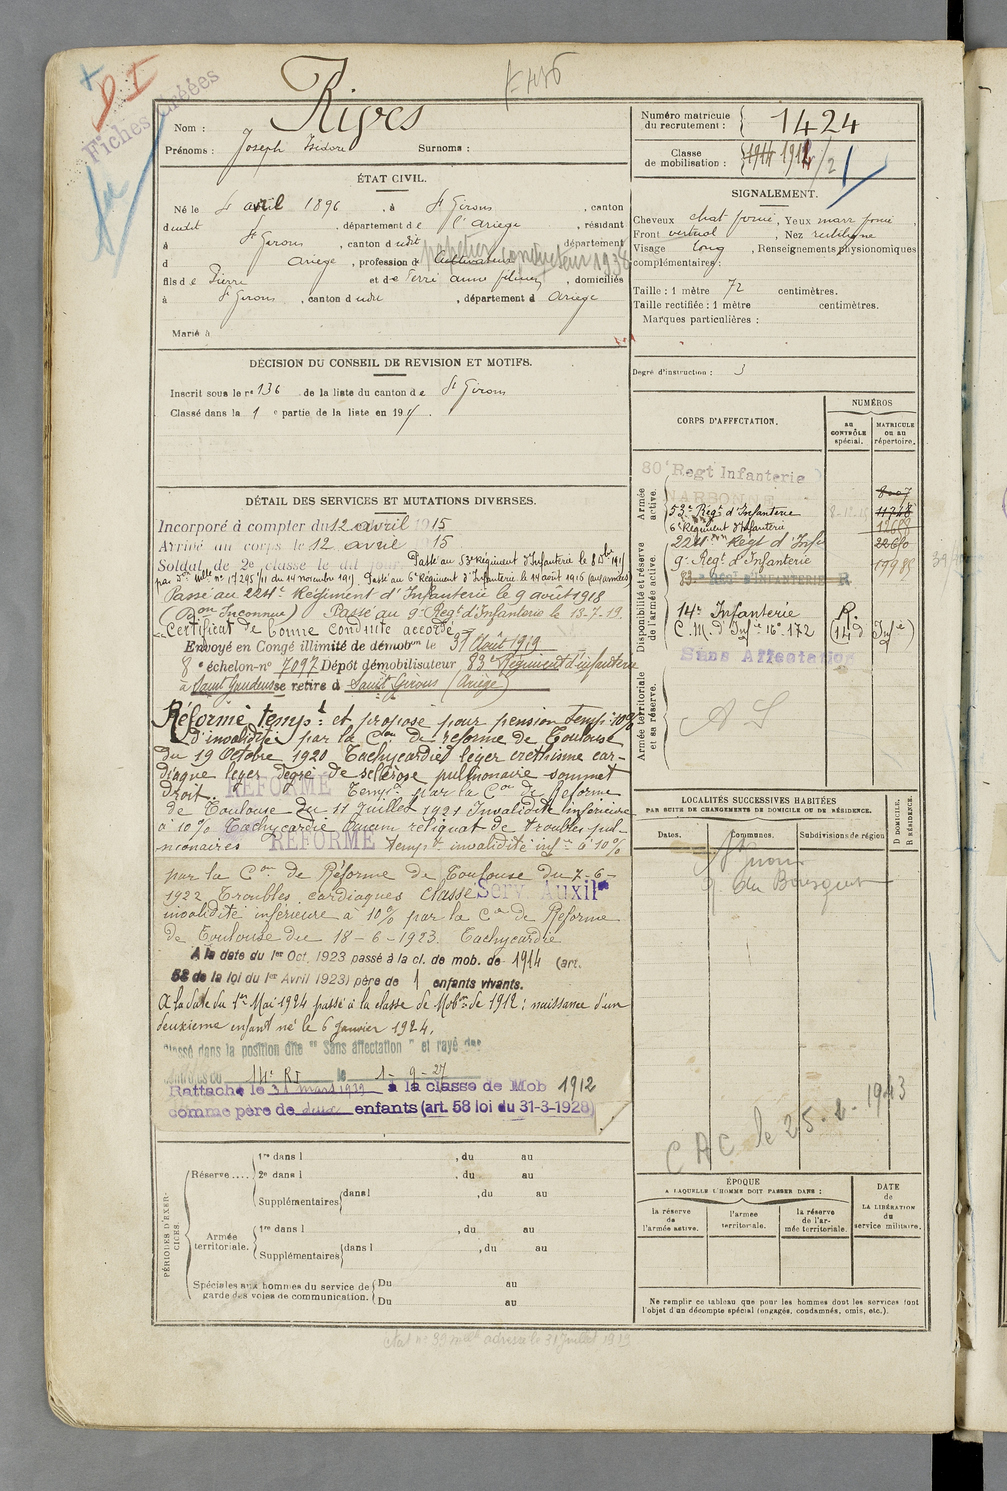 Fiches Créées
Rives
Nom :
Prénoms : Joseph Isidore Surnoms :
Numéro matricule du recrutement : 1424
Classe de mobilisation : 1914 1912
ÉTAT CIVIL.
Né le 4 avril 1896, à St Girons, canton
dudit, département de l'Ariège, résidant
à St Girons, canton dudit, département
d Ariège, profession de Cultivateur papetier conducteur 1938
fils de Pierre et de, domiciliés
à St Girons, canton dudit, département d Ariège
Marié à
SIGNALEMENT.
Cheveux chat foncé, Yeux marr foncé
Front vertical, Nez rectiligne
Visage long, Renseignements physionomiques
complémentaires :
Taille : 1 mètre 72 centimètres.
Taille rectifiée : 1 mètre centimètres.
Marques particulières :
Degré d'instruction : 3
DÉCISION DU CONSEIL DE REVISION ET MOTIFS.
Inscrit sous le no 136 de la liste du canton de St Girons
Classé dans la 1e partie de la liste en 191
DÉTAIL DES SERVICES ET MUTATIONS DIVERSES.
Incorporé à compter du 12 avril 1915
Arrivé au corps le 12 avril 15
Soldat de 2e classe le dit jour. Passé au 53e Régiment d'Infanterie le
No 17295/11 du 14 novembre 191. Passé au 6e Régiment d'Infanterie le 14 août 1916 (aux armées)
Passé au 224e Régiment d'Infanterie le 9 août 1918
(Don Inconnue) Passé au 9e Regt d'Infanterie le 13-7-19.
Certificat de bonne conduite accordé
Envoyé en Congé illimité de démobon le 31 Août 1919
8e échelon-no 7097 Dépôt démobilisateur 83e Régiment d'infanterie
à Saint Gaudens se retire à Saint Girons (Ariège)
Réformé tempt et proposé pour pension temp. 10%
d'invalidité par la Con de réforme de Toulouse
du 19 Octobre 1920 Tachycardie léger érethisme car-
diaque léger degré de sclérose pulmonaire sommet
droit. RÉFORMÉ Tempre par la Con de Réforme
de Toulouse du 11 Juillet 1921 Invalidité inférieure
à 10% Tachycardie Aucun reliquat de troubles pul-
monaires RÉFORMÉ tempt invalidité infre à 10%
par la Con de Réforme de Toulouse du 7-6-
1922 Troubles cardiaques Classé Serv. Auxil
invalidité inférieure à 10% par la Con de Réforme
de Toulouse du 18-6-1923. Tachycardie
A la date du 1er Oct. 1923 passé à la cl. de mob. de 1914 (art.
58 de la loi du 1er Avril 1923) père de 1 enfants vivants.
A la date du 1er Mai 1924 passé à la classe de Mobon de 1912 : naissance d'un
deuxième enfant né le 6 janvier 1924.
Classé dans la position dite "Sans affectation" et rayé des
contrôles du 14e RI le 1-9-27
Rattaché le 31 mars 1929 à la classe de Mob 1912
comme père de deux enfants (art. 58 loi du 31-3-1928)
CORPS D'AFFECTATION.
NUMÉROS
au CONTRÔLE spécial.
MATRICULE ou au répertoire.
Armée active.
80e Regt Infanterie
NARBONNE
53e Régt d'Infanterie 11348
6e Régiment d'Infanterie
224e Régt d'Infie
Disponibilité et réserve de l'armée active.
9e Regt d'Infanterie
83e REGt D'INFANTERIE R
14e Infanterie R.
C. M. d'Infie 16e 172 (14e d'Infie)
Sans Affectation
Armée territoriale et sa réserve.
A S
LOCALITÉS SUCCESSIVES HABITÉES
PAR SUITE DE CHANGEMENTS DE DOMICILE OU DE RÉSIDENCE.
Dates.
Communes.
Subdivisions de région
D DOMICILE.
R RÉSIDENCE.
St Girons
CAC le 25.2.1943
PÉRIODES D'EXERCICES.
Réserve.... 1re dans l , du au
2e dans l , du au
Supplémentaires dans l , du au
Armée territoriale. 1re dans l , du au
Supplémentaires dans l , du au
Spéciales aux hommes du service de garde des voies de communication. Du au
Du au
ÉPOQUE
A LAQUELLE L'HOMME DOIT PASSER DANS :
la réserve de l'armée active.
l'armée territoriale.
la réserve de l'armée territoriale.
DATE de LA LIBÉRATION du service militaire.
Ne remplir ce tableau que pour les hommes dont les services font
l'objet d'un décompte spécial (engagés, condamnés, omis, etc.).